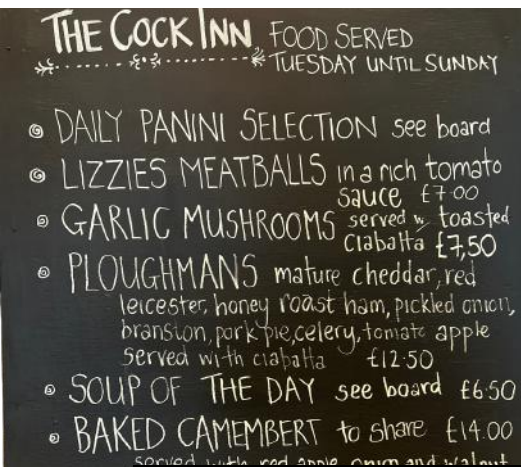 THE COCK INN FOOD SERVED
TUESDAY UNTIL SUNDAY
DAILY PANINI SELECTION see board
LIZZIES MEATBALLS in a rich tomato
sauce £7.00
GARLIC MUSHROOMS served w. toasted
ciabatta £7,50
PLOUGHMANS mature cheddar, red
leicester, honey roast ham, pickled onion,
branston, pork pie, celery, tomato apple
served with ciabatta £12.50
SOUP OF THE DAY see board £6.50
BAKED CAMEMBERT to share £14.00
served with red apple onion and walnut